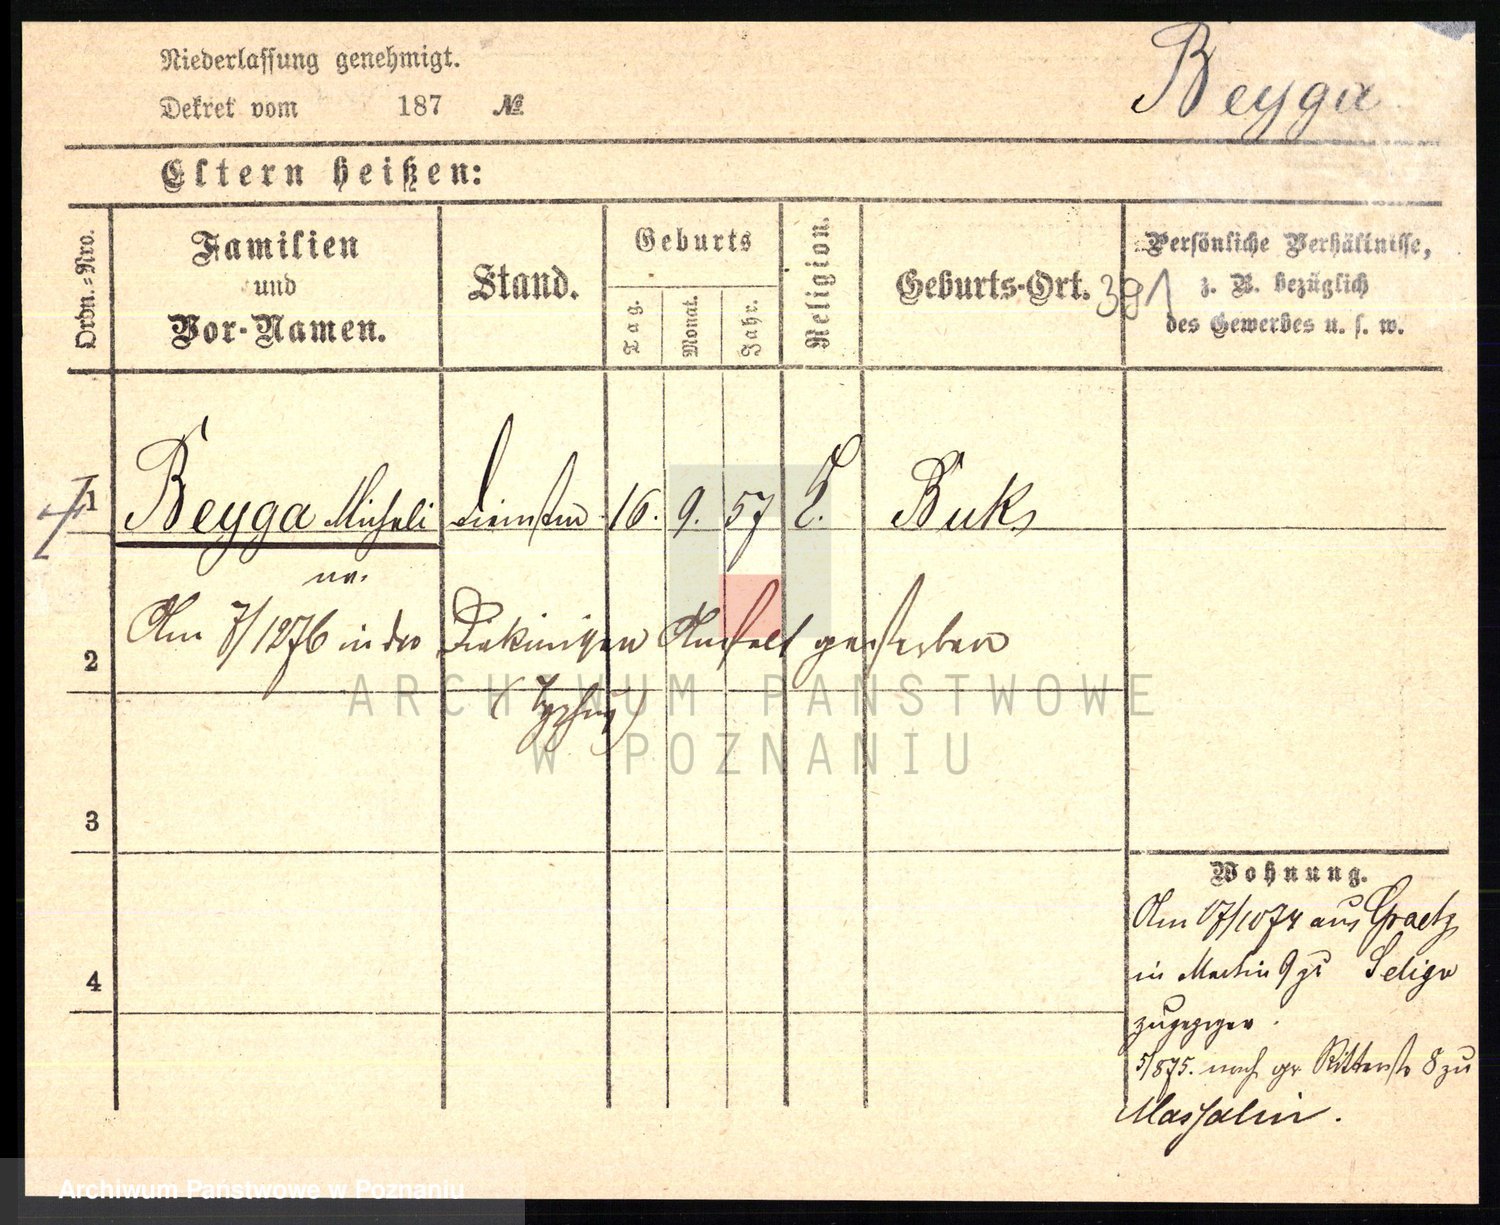 Niederlassung genehmigt.
Dekret vom 187 №
Beyga
Eltern heißen:
Ordn.-Nro.
Familien
und
Vor-Namen.
Stand.
Geburts
Tag.
Monat.
Jahr.
Religion.
Geburts-Ort.
391
Persönliche Verhältnisse,
z. B. bezüglich
des Gewerbes u. s. w.
1 Beyga 16. 9. 57 Buk
Am 7/1276 in der Diakonissen Anstalt gestorben
2
(Typhus)
3
4
Wohnung.
Am 17/1074 aus Graetz
in Martin 9 zu
zugezogen.
5/875. nach gr Ritterstr 8 zu
ARCHIWUM PAŃSTWOWE
W POZNANIU
Archiwum Państwowe w Poznaniu